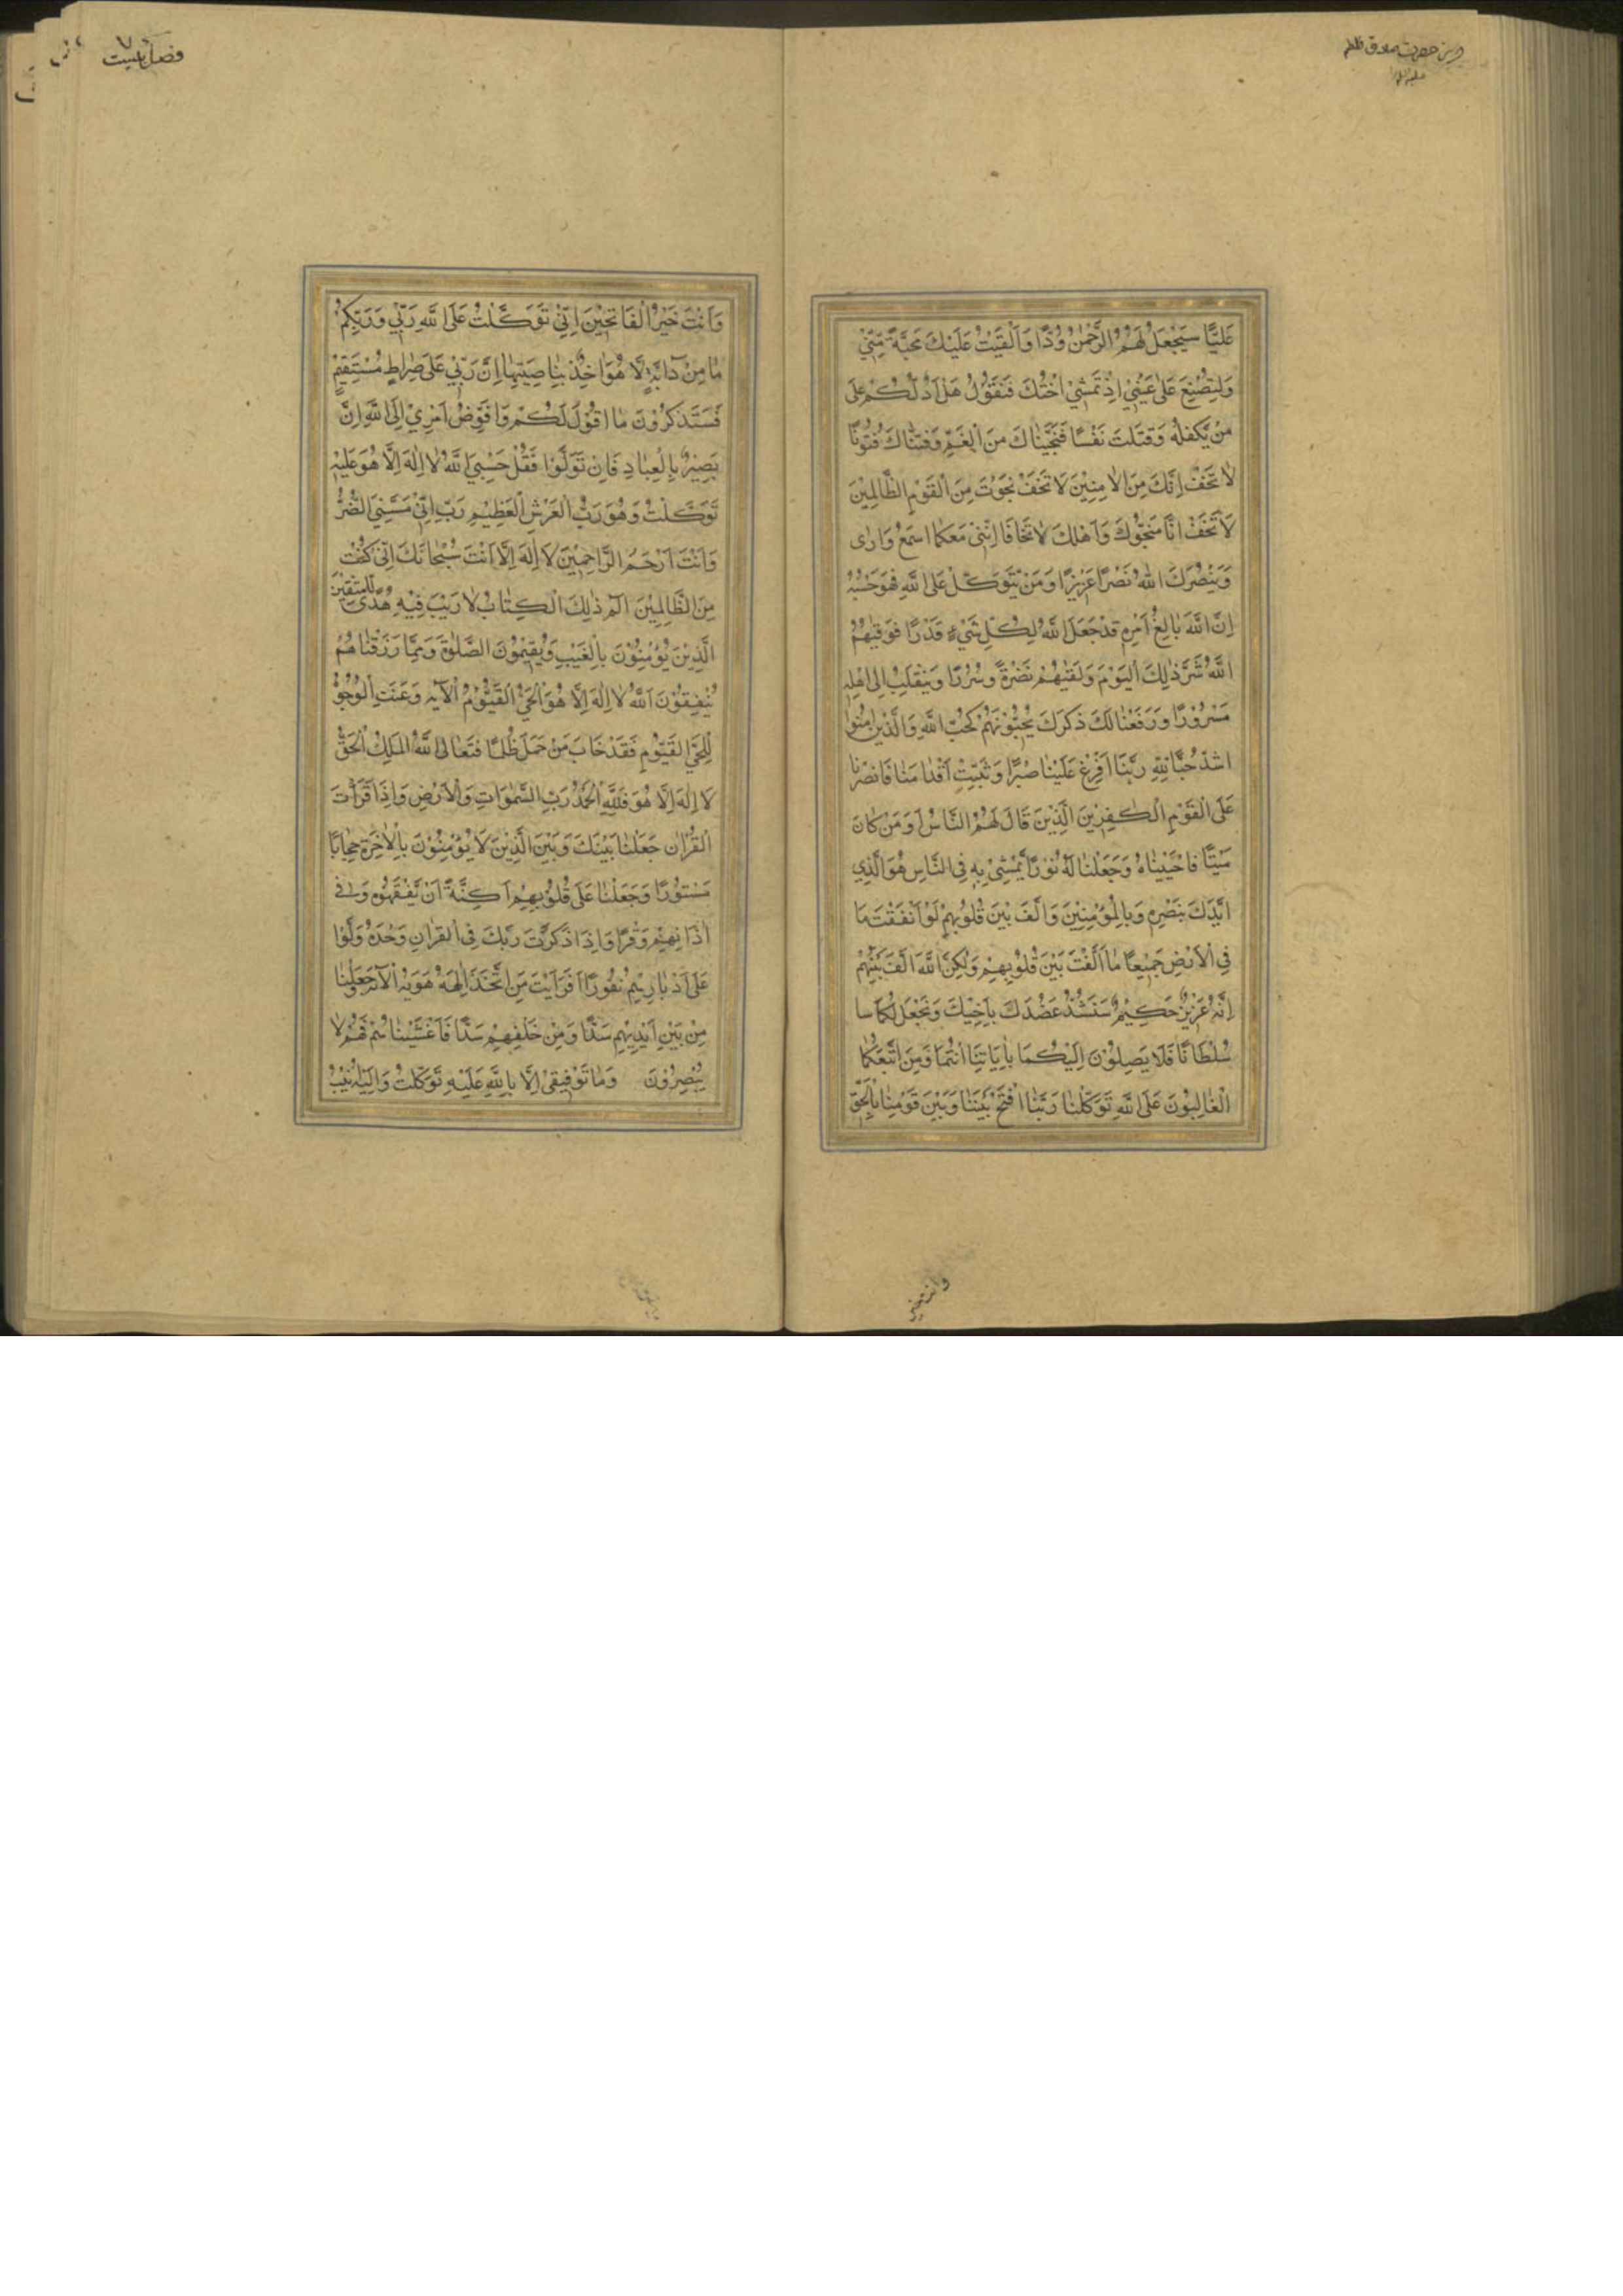 عَلِيًّا سَيَجْعَلُ لَهُمُ الرَّحْمٰنُ وُدًّا وَاَلْقَيْتُ عَلَيْكَ مَحَبَّةً مِّنِّيْ
وَلِتُصْنَعَ عَلٰى عَيْنِيْ اِذْ تَمْشِيْ اُخْتُكَ فَتَقُوْلُ هَلْ اَدُلُّكُمْ عَلٰى
مَنْ يَّكْفُلُهُ وَقَتَلْتَ نَفْسًا فَنَجَّيْنَاكَ مِنَ الْغَمِّ وَفَتَنَّاكَ فُتُوْنًا
لَا تَخَفْ اِنَّكَ مِنَ الْاٰمِنِيْنَ لَا تَخَفْ نَجَوْتَ مِنَ الْقَوْمِ الظَّالِمِيْنَ
لَا تَخَفْ اِنَّا مُنَجُّوْكَ وَاَهْلَكَ لَا تَخَافَا اِنَّنِيْ مَعَكُمَا اَسْمَعُ وَاَرٰى
وَيَنْصُرَكَ اللّٰهُ نَصْرًا عَزِيْزًا وَمَنْ يَّتَوَكَّلْ عَلَى اللّٰهِ فَهُوَ حَسْبُهُ
اِنَّ اللّٰهَ بَالِغُ اَمْرِهِ قَدْ جَعَلَ اللّٰهُ لِكُلِّ شَيْءٍ قَدْرًا فَوَقٰيهُمُ
اللّٰهُ شَرَّ ذٰلِكَ الْيَوْمِ وَلَقّٰيهُمْ نَضْرَةً وَسُرُوْرًا وَيَنْقَلِبُ اِلٰى اَهْلِهِ
مَسْرُوْرًا وَرَفَعْنَا لَكَ ذِكْرَكَ يُحِبُّوْنَهُمْ كَحُبِّ اللّٰهِ وَالَّذِيْنَ اٰمَنُوْا
اَشَدُّ حُبًّا لِلّٰهِ رَبَّنَا اَفْرِغْ عَلَيْنَا صَبْرًا وَثَبِّتْ اَقْدَامَنَا فَانْصُرْنَا
عَلَى الْقَوْمِ الْكٰفِرِيْنَ الَّذِيْنَ قَالَ لَهُمُ النَّاسُ اَوَمَنْ كَانَ
مَيْتًا فَاَحْيَيْنَاهُ وَجَعَلْنَا لَهُ نُوْرًا يَّمْشِيْ بِهِ فِى النَّاسِ هُوَ الَّذِيْ
اَيَّدَكَ بِنَصْرِهِ وَبِالْمُؤْمِنِيْنَ وَاَلَّفَ بَيْنَ قُلُوْبِهِمْ لَوْ اَنْفَقْتَ مَا
فِى الْاَرْضِ جَمِيْعًا مَا اَلَّفْتَ بَيْنَ قُلُوْبِهِمْ وَلٰكِنَّ اللّٰهَ اَلَّفَ بَيْنَهُمْ
اِنَّهُ عَزِيْزٌ حَكِيْمٌ سَنَشُدُّ عَضُدَكَ بِاَخِيْكَ وَنَجْعَلُ لَكُمَا سا
سُلْطَانًا فَلَا يَصِلُوْنَ اِلَيْكُمَا بِاٰيَاتِنَا اَنْتُمَا وَمَنِ اتَّبَعَكُمَا
الْغَالِبُوْنَ عَلَى اللّٰهِ تَوَكَّلْنَا رَبَّنَا افْتَحْ بَيْنَنَا وَبَيْنَ قَوْمِنَا بِالْحَقِّ
فصل بیست
وَاَنْتَ خَيْرُ الْفَاتِحِيْنَ اِنِّيْ تَوَكَّلْتُ عَلَى اللّٰهِ رَبِّيْ وَرَبِّكُمْ
مَا مِنْ دَابَّةٍ اِلَّا هُوَ اٰخِذٌ بِنَاصِيَتِهَا اِنَّ رَبِّيْ عَلٰى صِرَاطٍ مُسْتَقِيْمٍ
فَسَتَذْكُرُوْنَ مَا اَقُوْلُ لَكُمْ وَاُفَوِّضُ اَمْرِيْ اِلَى اللّٰهِ اِنَّ
بَصِيْرٌ بِالْعِبَادِ فَاِنْ تَوَلَّوْا فَقُلْ حَسْبِيَ اللّٰهُ لَا اِلٰهَ اِلَّا هُوَ عَلَيْهِ
تَوَكَّلْتُ وَهُوَ رَبُّ الْعَرْشِ الْعَظِيْمِ رَبِّ اِنِّيْ مَسَّنِيَ الضُّرُّ
وَاَنْتَ اَرْحَمُ الرَّاحِمِيْنَ لَا اِلٰهَ اِلَّا اَنْتَ سُبْحَانَكَ اِنِّيْ كُنْتُ
مِنَ الظَّالِمِيْنَ الٓمٓ ذٰلِكَ الْكِتَابُ لَا رَيْبَ فِيْهِ هُدًى لِّلْمُتَّقِيْنَ
الَّذِيْنَ يُؤْمِنُوْنَ بِالْغَيْبِ وَيُقِيْمُوْنَ الصَّلٰوةَ وَمِمَّا رَزَقْنَاهُمْ
يُنْفِقُوْنَ اَللّٰهُ لَا اِلٰهَ اِلَّا هُوَ الْحَيُّ الْقَيُّوْمُ الْآيه وَعَنَتِ الْوُجُوْهُ
لِلْحَيِّ الْقَيُّوْمِ فَقَدْ خَابَ مَنْ حَمَلَ ظُلْمًا فَتَعَالَى اللّٰهُ الْمَلِكُ الْحَقُّ
لَا اِلٰهَ اِلَّا هُوَ فَلِلّٰهِ الْحَمْدُ رَبِّ السَّمٰوَاتِ وَالْاَرْضِ وَاِذَا قَرَأْتَ
الْقُرْاٰنَ جَعَلْنَا بَيْنَكَ وَبَيْنَ الَّذِيْنَ لَا يُؤْمِنُوْنَ بِالْاٰخِرَةِ حِجَابًا
مَسْتُوْرًا وَجَعَلْنَا عَلٰى قُلُوْبِهِمْ اَكِنَّةً اَنْ يَّفْقَهُوْهُ وَفِيْ
اٰذَانِهِمْ وَقْرًا وَاِذَا ذَكَرْتَ رَبَّكَ فِى الْقُرْاٰنِ وَحْدَهُ وَلَّوْا
عَلٰى اَدْبَارِهِمْ نُفُوْرًا اَفَرَاَيْتَ مَنِ اتَّخَذَ اِلٰهَهُ هَوٰيهُ الْآيه وَجَعَلْنَا
مِنْ بَيْنِ اَيْدِيْهِمْ سَدًّا وَمِنْ خَلْفِهِمْ سَدًّا فَاَغْشَيْنَاهُمْ فَهُمْ لَا
يُبْصِرُوْنَ وَمَا تَوْفِيْقِيْ اِلَّا بِاللّٰهِ عَلَيْهِ تَوَكَّلْتُ وَاِلَيْهِ اُنِيْبُ